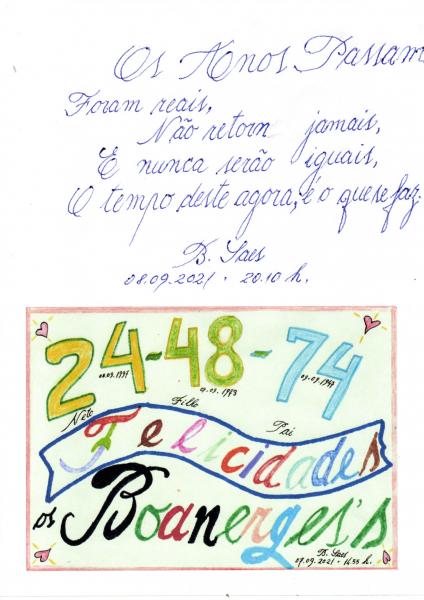 Os Anos Passam
Foram reais,
Não retorn jamais,
E nunca serão iguais,
O tempo deste agora, é o que se faz.
B. Saes
08.09.2021 . 20.10 h.
24-48-74
Neto Filho Pai
Felicidades
os Boanerges's
B. Saes
07.09.2021 . 16.55 h.